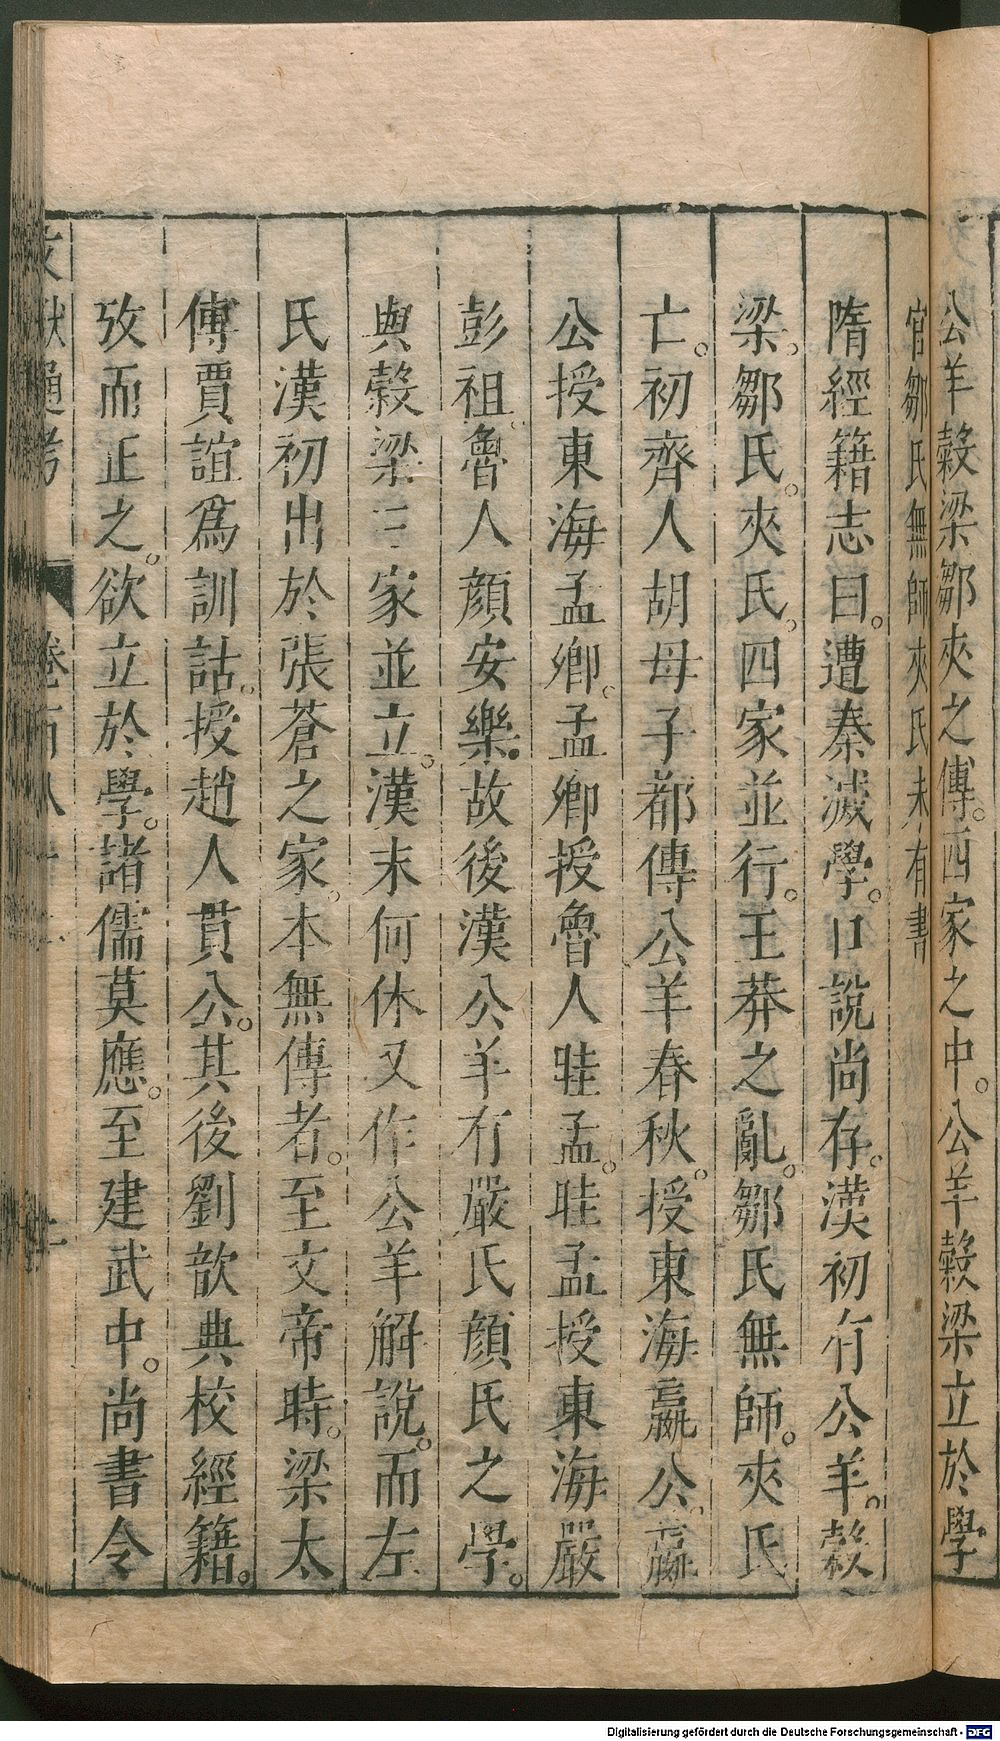 公羊穀梁鄒夾之傳。四家之中。公羊穀梁立於學。
官鄒氏無師夾氏未有書
隋經籍志曰。遭秦滅學。口說尚存。漢初有公羊。穀
梁。鄒氏。夾氏。四家並行。王莽之亂。鄒氏無師。夾氏
亡。初齊人胡母子都傳公羊春秋。授東海嬴公。嬴
公授東海孟卿。孟卿授魯人眭孟。眭孟授東海嚴
彭祖。魯人顔安樂。故後漢公羊有嚴氏顔氏之學。
與穀梁三家並立。漢末何休又作公羊解說。而左
氏漢初出於張蒼之家。本無傳者。至文帝時。梁太
傅賈誼爲訓詁。授趙人貫公。其後劉歆典校經籍。
攷而正之。欲立於學。諸儒莫應。至建武中。尚書令
文獻通考 卷百八十二 十一
Digitalisierung gefördert durch die Deutsche Forschungsgemeinschaft - DFG